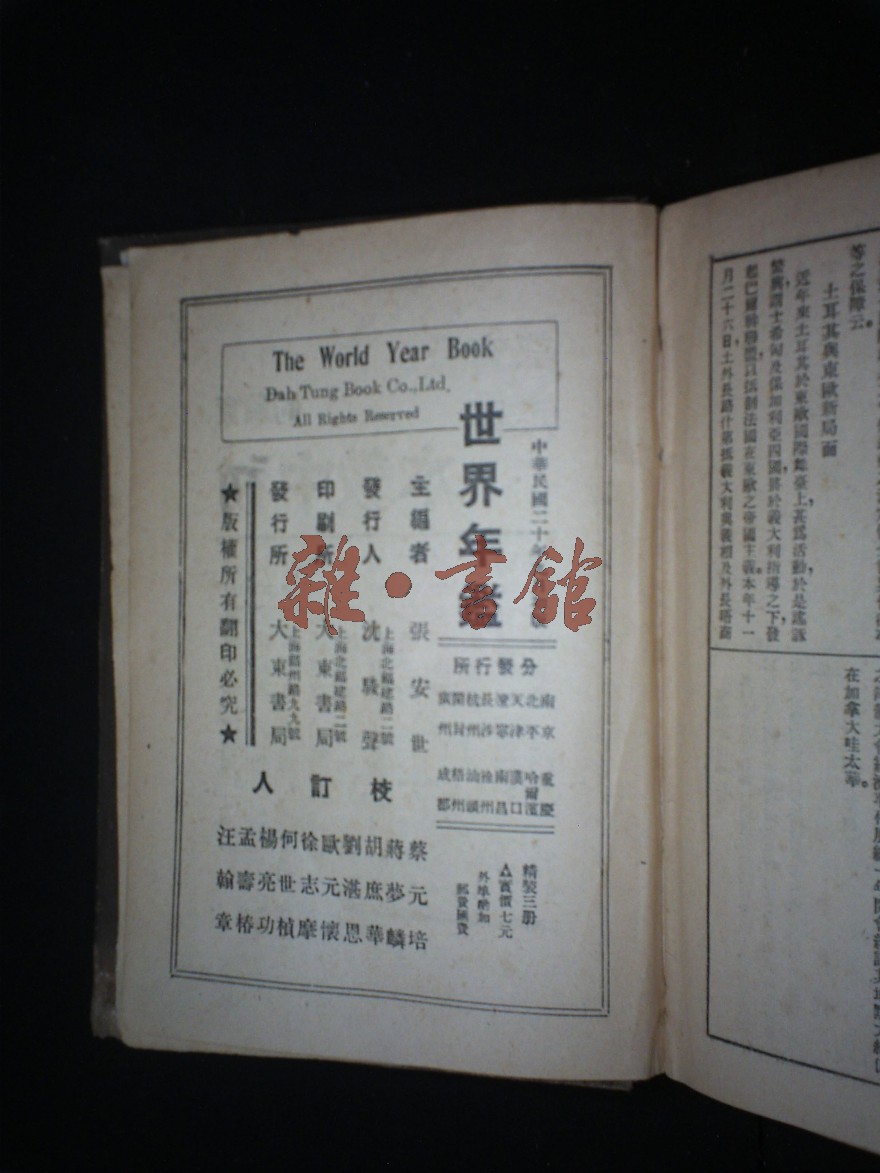 The World Year Book
Dah Tung Book Co., Ltd.
All Rights Reserved
中華民國二十年
世界年鑑
分發行所
南京
北平
天津
遼寧
長沙
杭州
開封
廣州
重慶
哈爾濱
漢口
南昌
徐州
汕頭
梧州
成都
精裝三册
△實價七元
外埠酌加
郵費匯費
主編者 張安世
發行人 上海北福建路二號 沈駿聲
印刷所 上海北福建路二號 大東書局
發行所 上海福州路九九號 大東書局
★版權所有翻印必究★
校訂人
蔡元培
蔣夢麟
胡庶華
劉湛恩
歐元懷
徐志摩
何世楨
楊亮功
孟壽椿
汪翰章
雜·書館
等之保障云。
土耳其與東歐新局面
近年來土耳其於東歐國際舞臺上甚爲活動於是謠諑
繁興,謂土希匈及保加利亞四國將於義大利指導之下,發
起巴爾幹聯盟以抵制法國在東歐之帝國主義。本年十一
月二十六日,土外長路什第抵義大利與義相及外長略商
在加拿大哇太華。